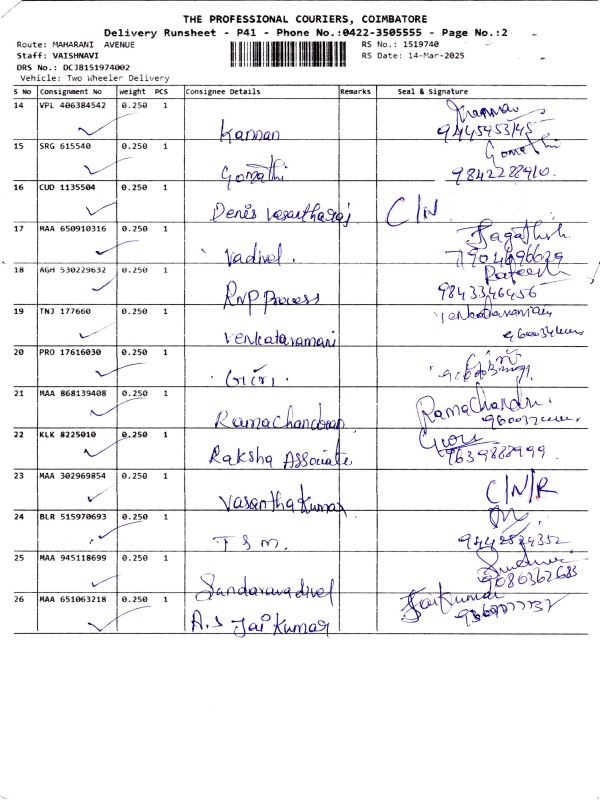 THE PROFESSIONAL COURIERS, COIMBATORE
Delivery Runsheet - P41 - Phone No.:0422-3505555 - Page No.:2
Route: MAHARANI AVENUE
RS No.: 1519740
Staff: VAISHNAVI
RS Date: 14-Mar-2025
DRS No.: DCJB151974002
Vehicle: Two Wheeler Delivery
S No Consignment No Weight PCS Consignee Details Remarks Seal & Signature
14 VPL 406384542 0.250 1
Kannan
9445453145
15 SRG 615540 0.250 1
Gomathi
Gomathi
9842288910.
16 CUD 1135504 0.250 1
Denis Vasantharaj C/N
17 MAA 650910316 0.250 1
Vadivel. Jagathish
18 AGH 530229632 0.250 1
RNP Process
Rajesh
9843346456
19 TNJ 177660 0.250 1
Venkataramani
Venkataramani
20 PRO 17616030 0.250 1
Giri.
21 MAA 868139408 0.250 1
Ramachandran
22 KLK 8225010 0.250 1
Raksha Associate
9639888999
23 MAA 302969854 0.250 1
Vasanthakumar C/N/R
24 BLR 515970693 0.250 1
T S M.
9442534352
25 MAA 945118699 0.250 1
Sundaravadivel
9080362683
26 MAA 651063218 0.250 1
A.S Jai Kumar
Jai Kumar